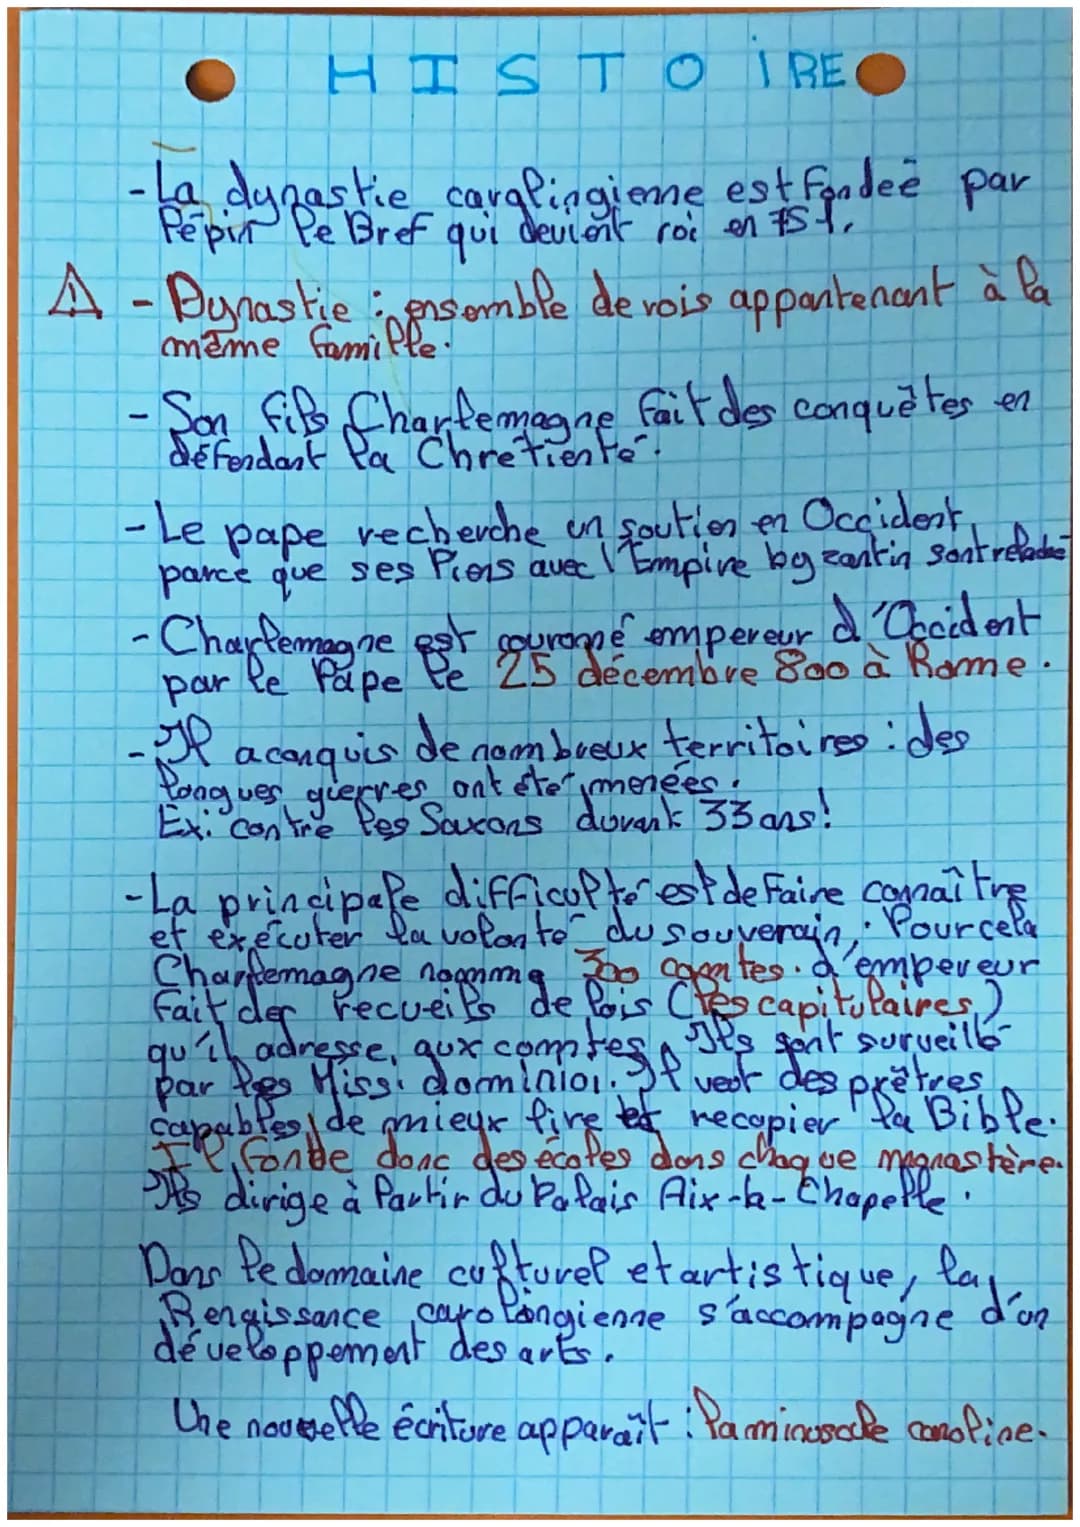 HISTOIRE
- La dynastie carolingienne est fondée par
Pépin le Bref qui devient roi en 751.
- Dynastie : ensemble de rois appartenant à la
même famille.
- Son fils Charlemagne fait des conquêtes en
défendant la Chretienté.
- Le pape recherche un soutien en Occident,
parce que ses liens avec l'Empire byzantin sont relaché
- Charlemagne est couronné empereur d'Occident
par le Pape le 25 décembre 800 à Rome.
- Il a conquis de nombreux territoires : des
longues guerres ont été menées.
Ex: contre les Saxons durant 33 ans!
- La principale difficulté est de faire connaître
et exécuter la volonté du souverain, : Pour cela
Charlemagne nomme 300 comtes. d'empereur
fait des recueils de lois (les capitulaires)
qu'il adresse aux comptes, Ils sont surveillé
par les Missi dominici. Il veut des prêtres
capables de mieux lire et recopier la Bible.
Il fonde donc des écoles dans chaque monastère.
Ils dirige à Partir du Palais Aix-la-Chapelle.
Dans le domaine culturel et artistique, la
Renaissance carolingienne s'accompagne d'un
développement des arts.
Une nouvelle écriture apparaît : la minuscule caroline.